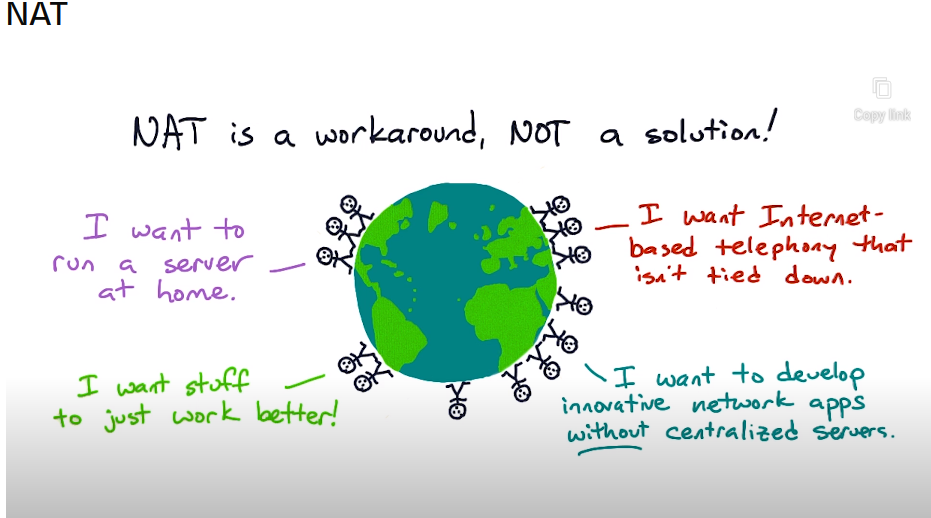 NAT
Copy link
NAT is a workaround, NOT a solution!
I want to
run a server
at home.
I want Internet-
based telephony that
isn't tied down.
I want stuff
to just work better!
I want to develop
innovative network apps
without centralized servers.